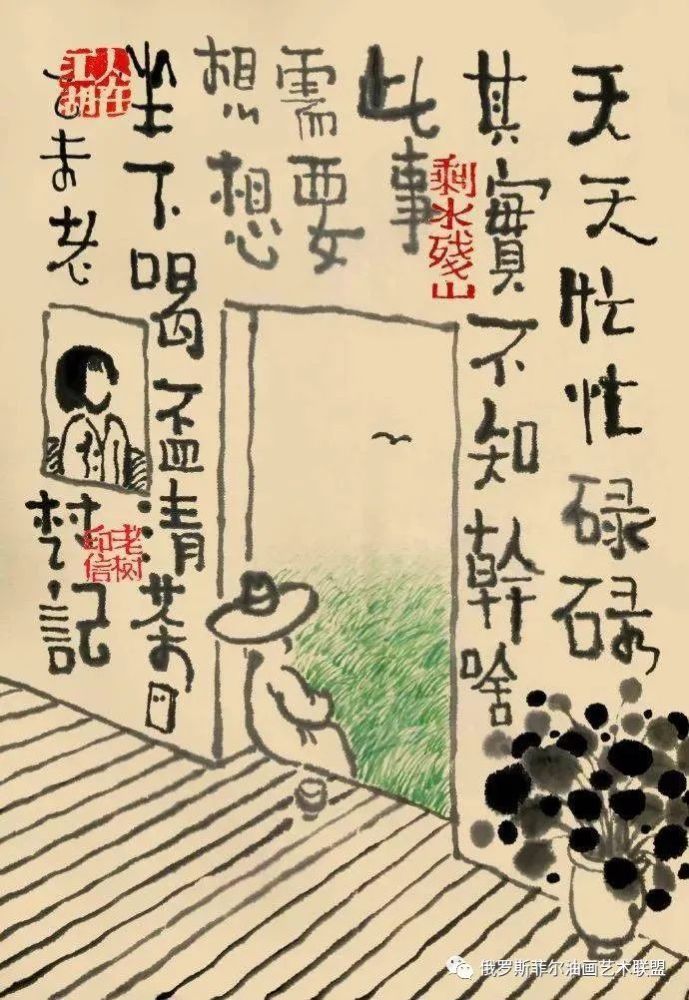 天天忙忙碌碌
其實不知幹啥
此事
需要
想想
坐下喝盃清茶
乙未老樹記
剩水殘山
人在江湖
老树印信
俄罗斯菲尔油画艺术联盟